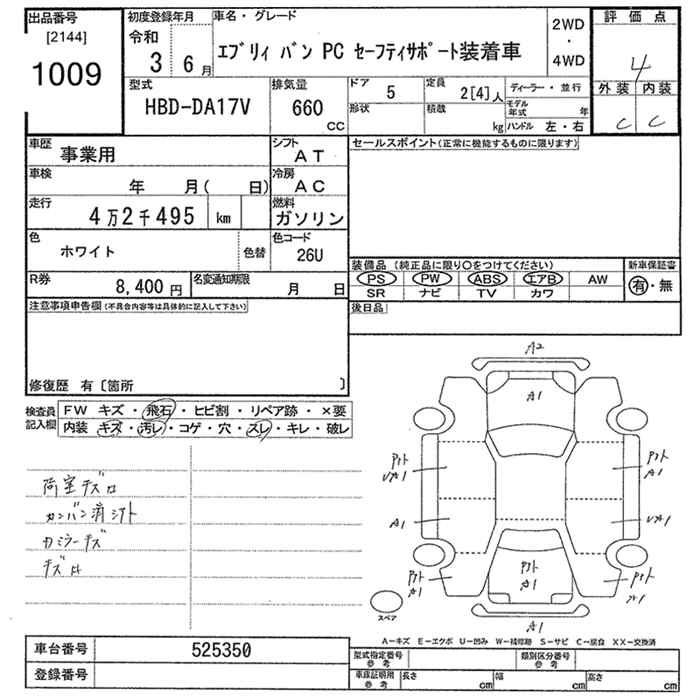 出品番号
[2144]
1009
初度登録年月
令和 3 6月
車名・グレード
エブリィ バン PC セーフティサポート装着車
2WD
・
4WD
評価点
4
外装 内装
C C
型式
HBD-DA17V
排気量
660
CC
ドア 5
形状
定員 2[4]人
積載 kg
ディーラー・並行
モデル年式 年
ハンドル 左・右
車歴 事業用
シフト AT
車検 年 月( 日)
冷房 AC
走行 4万2千495 km
燃料 ガソリン
色 ホワイト 色替
色コード 26U
R券 8,400円
名変通知期限 月 日
セールスポイント(正常に機能するものに限ります)
装備品(純正品に限り○をつけてください)
PS PW ABS エアB AW
SR ナビ TV カワ
新車保証書
有・無
後日品
注意事項申告欄(不具合内容等は具体的に記入して下さい)
修復歴 有〔箇所 〕
検査員記入欄
FW キズ・飛石・ヒビ割・リペア跡・×要
内装 キズ・汚レ・コゲ・穴・スレ・キレ・破レ
荷室キズ
カンバン消シアト
カミラーキズ
キズ
A2
A1
A1
A1
A1
A1
A1
A1
A1
スペア
A-キズ E-エクボ U-凹み W-補修跡 S-サビ C-腐食 XX-交換済
車台番号 525350
登録番号
型式指定番号 参考
類別区分番号 参考
車庫証明用 参考
長さ cm
幅 cm
高さ cm